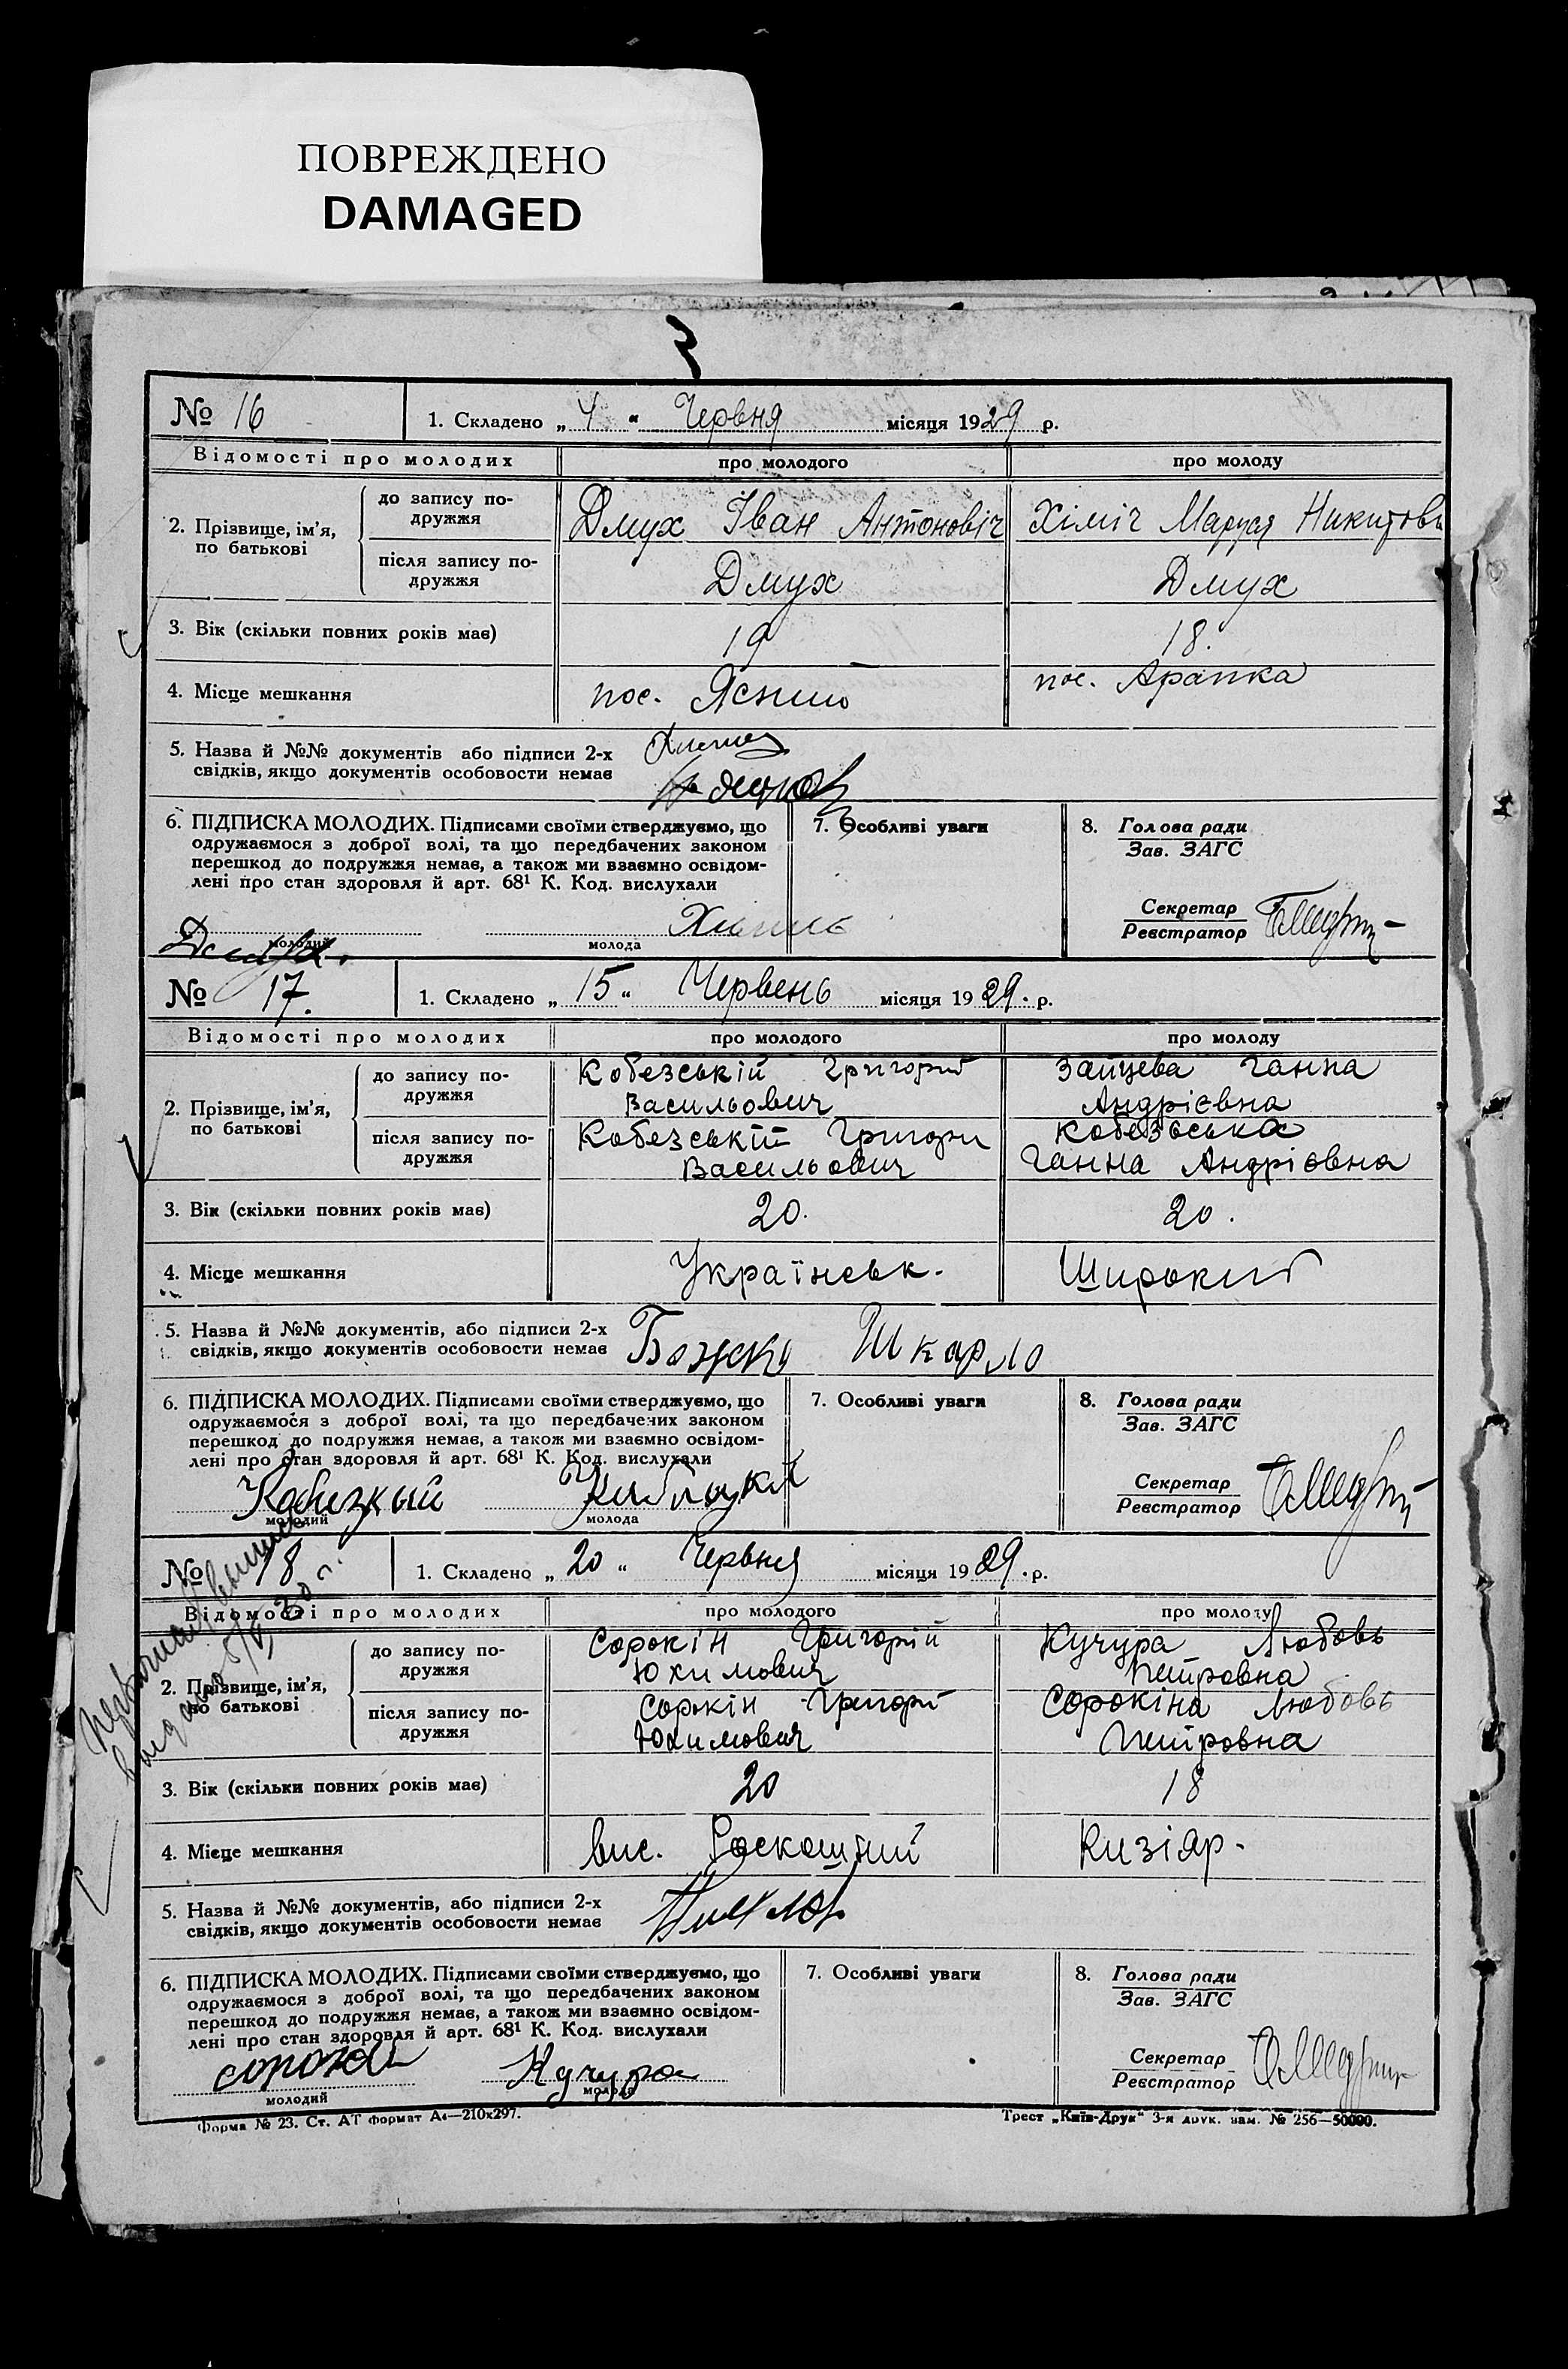 ПОВРЕЖДЕНО
DAMAGED
№ 16 1. Складено „ 4 “ Червня місяця 1929 р.
Відомості про молодих про молодого про молоду
2. Прізвище, ім’я, по батькові
до запису по-
дружжя
Дмух Іван Антоновіч Хіміч Маруся Никитовн
після запису по-
дружжя
Дмух Дмух
3. Вік (скільки повних років має) 19 18.
4. Місце мешкання пос. Ясний пос. Арапка
5. Назва й №№ документів або підписи 2-х
свідків, якщо документів особовости немає
6. ПІДПИСКА МОЛОДИХ. Підписами своїми стверджуємо, що
одружаємося з доброї волі, та що передбачених законом
перешкод до подружжя немає, а також ми взаємно освідом-
лені про стан здоровля й арт. 68¹ К. Код. вислухали
7. Особливі уваги
8. Голова ради
Зав. ЗАГС
Секретар
Реєстратор
Дмух.
молодий молода
№ 17. 1. Складено „ 15 “ Червень місяця 1929. р.
Відомості про молодих про молодого про молоду
2. Прізвище, ім’я,
по батькові
до запису по-
дружжя
Кобезській Григорий Зайцева Ганна
Васильович Андрієвна
після запису по-
дружжя
Кобезській Григори Кобезьська
Васильович Ганна Андрієвна
3. Вік (скільки повних років має) 20. 20.
4. Місце мешкання Українськ. Широкий
5. Назва й №№ документів, або підписи 2-х
свідків, якщо документів особовости немає
Божко Шкарло
6. ПІДПИСКА МОЛОДИХ. Підписами своїми стверджуємо, що
одружаємося з доброї волі, та що передбачених законом
перешкод до подружжя немає, а також ми взаємно освідом-
лені про стан здоровля й арт. 68¹ К. Код. вислухали
7. Особливі уваги
8. Голова ради
Зав. ЗАГС
Секретар
Реєстратор
молодий молода
№ 18 1. Складено „ 20 “ Червня місяця 1929. р.
Відомості про молодих про молодого про молоду
2. Прізвище, ім’я,
по батькові
до запису по-
дружжя
Сорокін Григорій Кучура Любовь
Юхимович Петровна
після запису по-
дружжя
Сорокін Григори Сорокіна Любовь
Юхимович Петровна
3. Вік (скільки повних років має) 20 18
4. Місце мешкання вис. Роскошний Кизіяр.
5. Назва й №№ документів, або підписи 2-х
свідків, якщо документів особовости немає
6. ПІДПИСКА МОЛОДИХ. Підписами своїми стверджуємо, що
одружаємося з доброї волі, та що передбачених законом
перешкод до подружжя немає, а також ми взаємно освідом-
лені про стан здоровля й арт. 68¹ К. Код. вислухали
7. Особливі уваги
8. Голова ради
Зав. ЗАГС
Секретар
Реєстратор
Кучура
молодий молода
Форма № 23. Ст. АТ Формат А4—210х297. Трест „Київ-Друк“ 3-я друк. зам. № 256—50000.